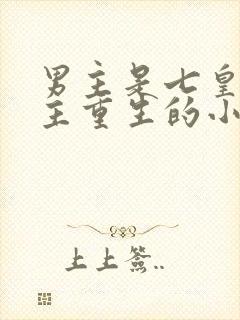 男主是七皇
主重生的小
上上签..